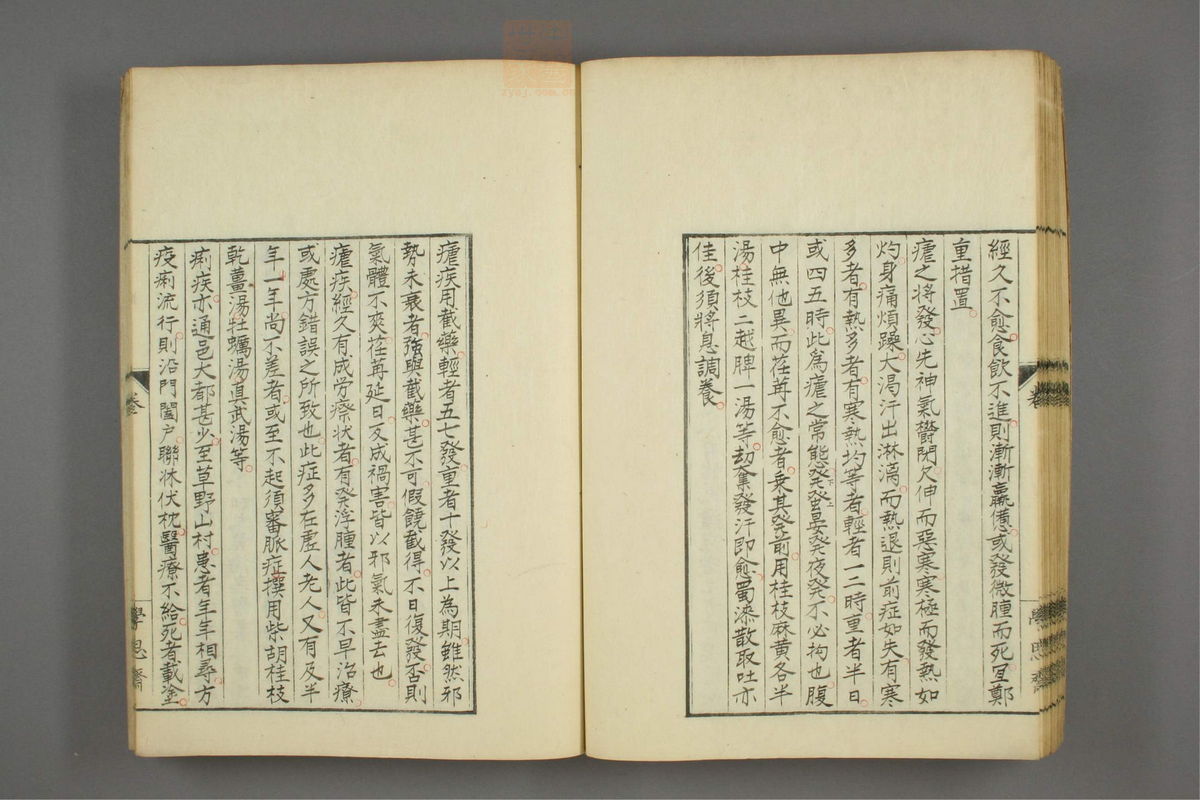 經久不愈食飲不進則漸漸羸憊或發微腫而死宜鄭
重措置
瘧之將發心先神氣欝閉欠伸而惡寒寒極而發熱如
灼身痛煩躁大渴汗出淋漓而熱退則前症如失有寒
多者有熱多者有寒熱均等者輕者一二時重者半日
或四五時此為瘧之常態發蚤晏發夜發不必拘也腹
中無他異而荏苒不愈者乗其發前用桂枝麻黄各半
湯桂枝二越脾一湯等劫奪發汗即愈蜀漆散取吐亦
佳後須將息調養
瘧疾用截藥輕者五七發重者十發以上為期雖然邪
勢未衰者強與截藥甚不可假饒截得不日復發否則
氣體不爽荏苒延日反成禍害皆以邪氣未盡去也
瘧疾經久有成労瘵状者有發浮腫者此皆不早治療
或處方錯誤之所致也此症多在虛人老人又有及半
年一年尚不差者或至不起須審脈症撰用柴胡桂枝
乾薑湯牡蠣湯真武湯等
痢疾亦通邑大都甚少至草野山村患者年年相尋方
疫痢流行則沿門闔戸聯牀伏枕醫療不給死者載塗
學思齋